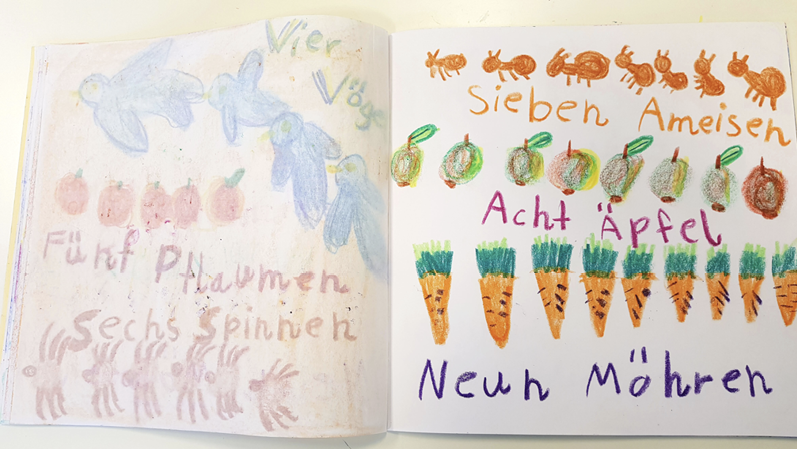 Vier
Vöge
Fünf Pflaumen
Sechs Spinnen
Sieben Ameisen
Acht Äpfel
Neun Möhren